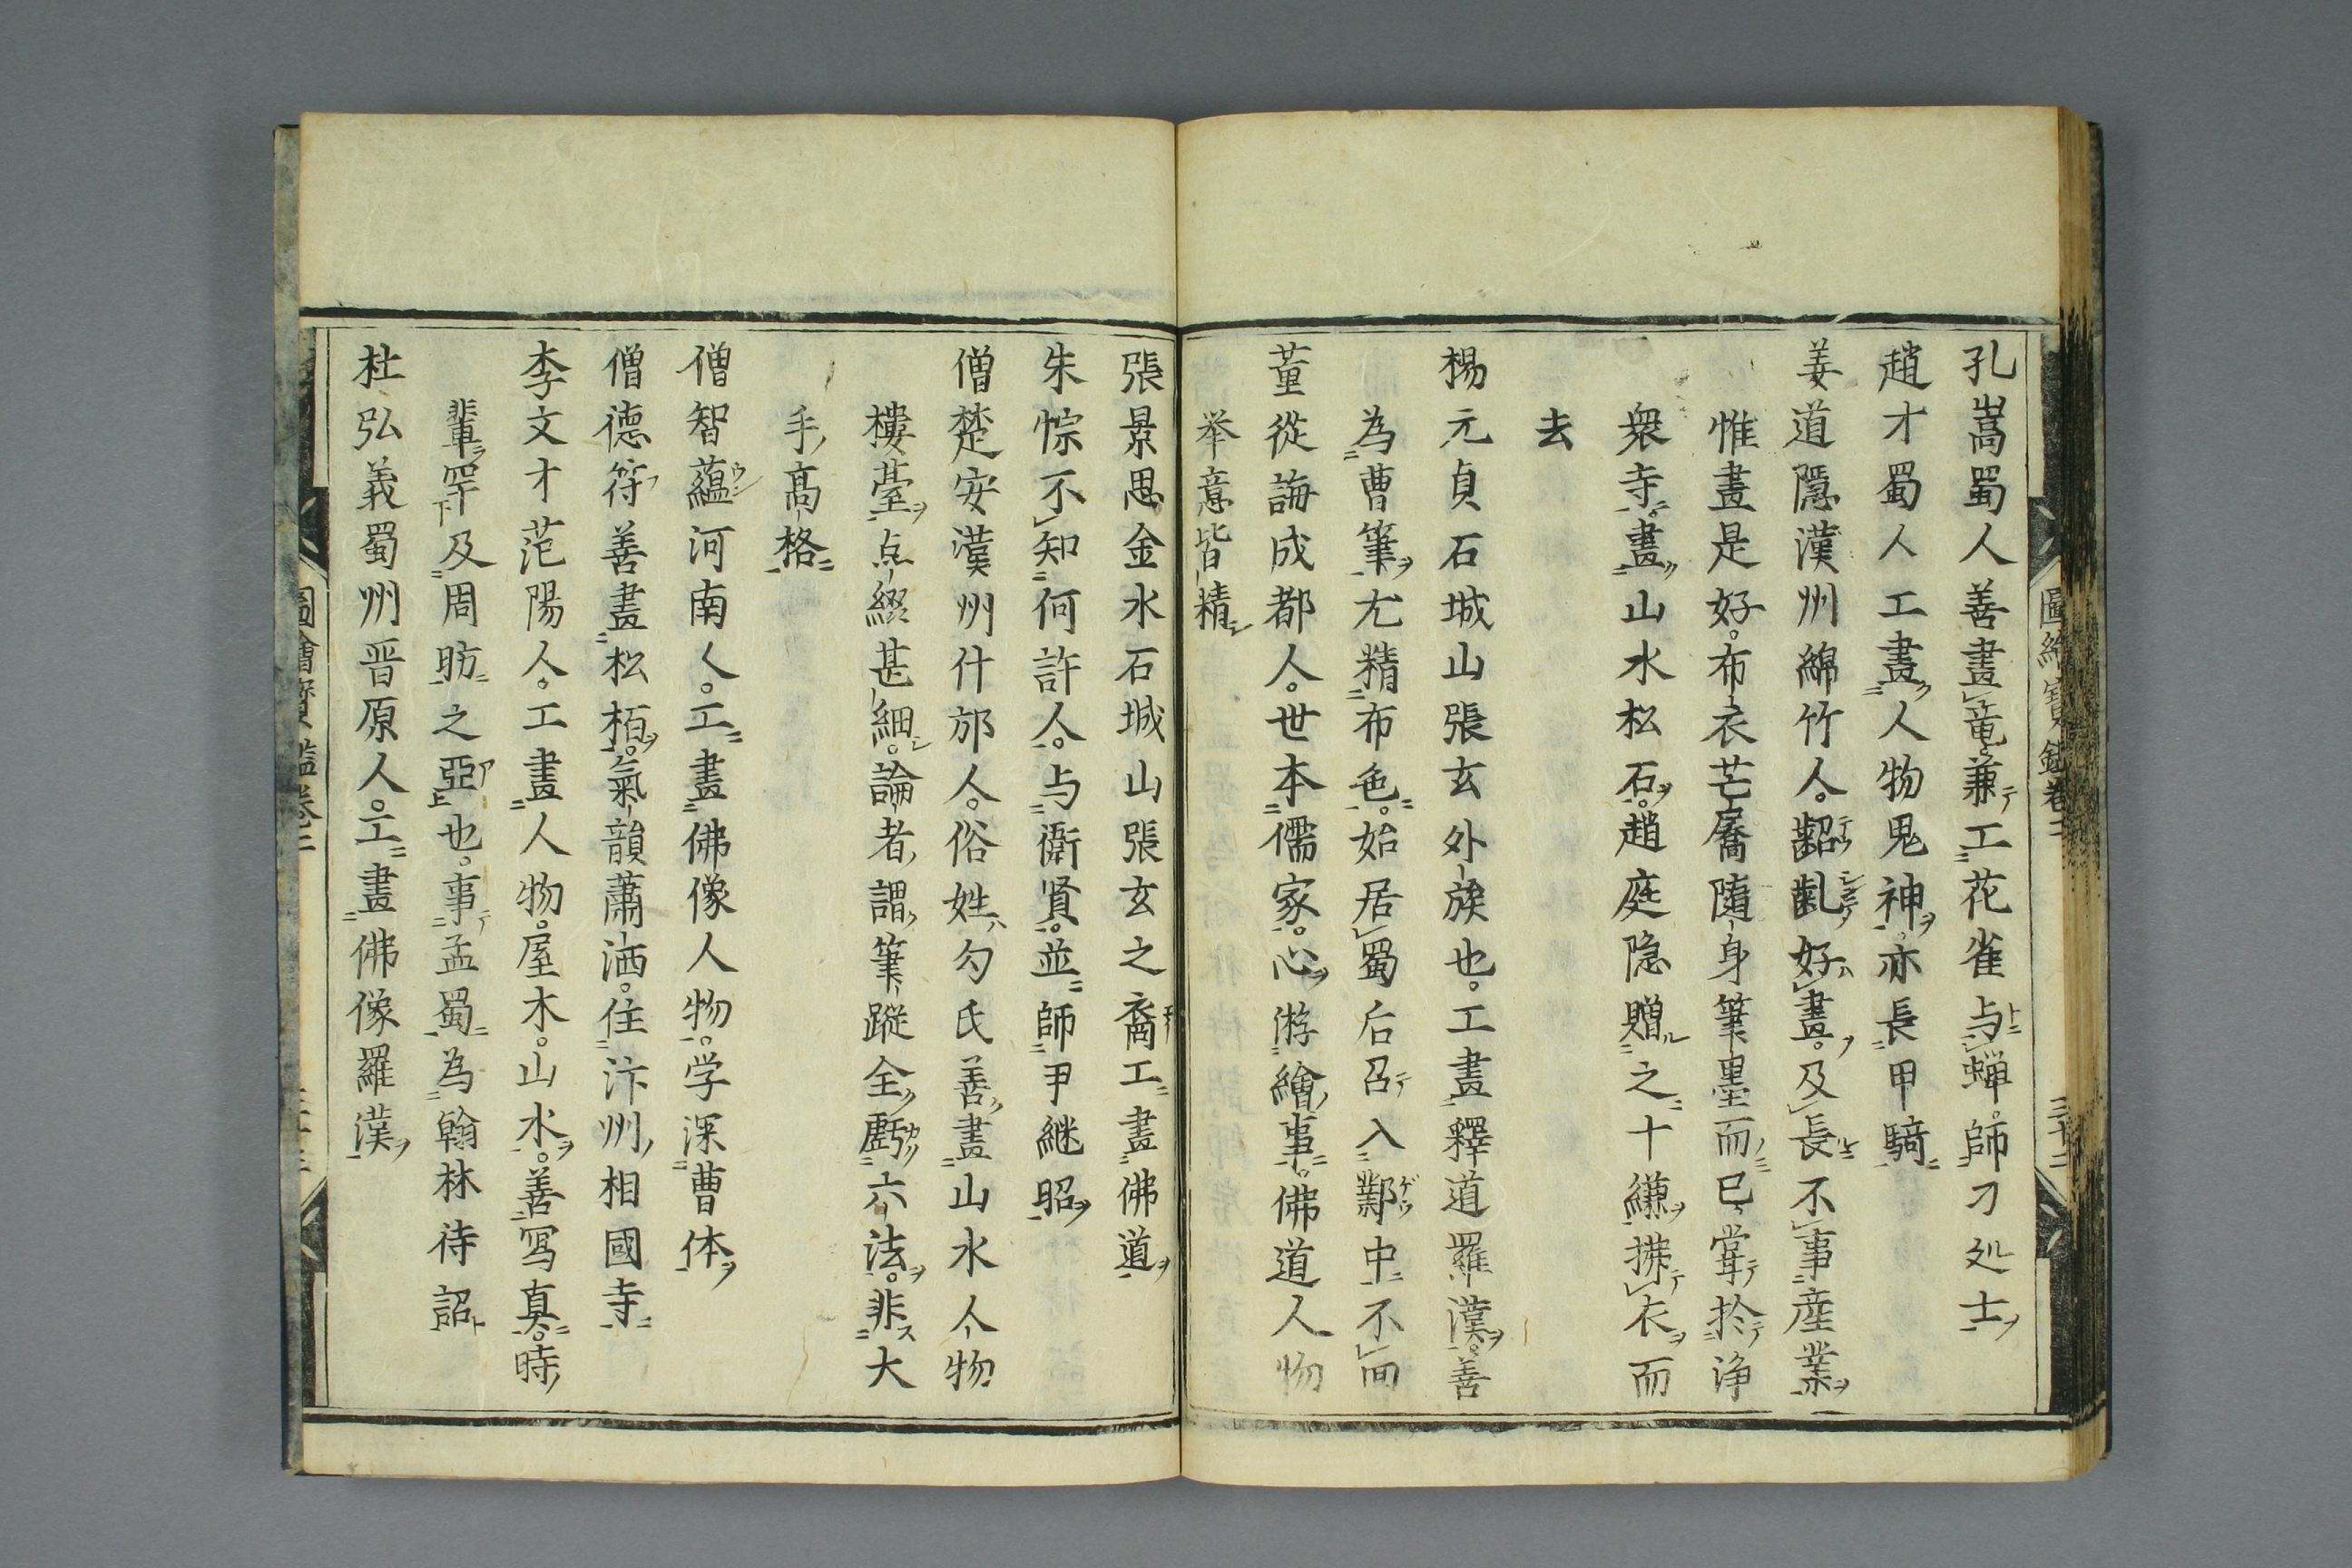 孔嵩蜀人善畫竜兼工花雀与蝉師刁処士
趙才蜀人工畫人物鬼神亦長甲騎
姜道隱漢州綿竹人齠齔好畫及長不事産業
惟畫是好布衣芒屩随身筆墨而已甞於浄
衆寺畫山水松石趙庭隐贈之十縑拂衣而
去
楊元貞石城山張玄外族也工畫釋道羅漢善
為曹筆尤精布色始居蜀后召入鄴中不回
董從誨成都人世本儒家心游繪事佛道人物
举意皆精
張景思金水石城山張玄之裔工畫佛道
朱悰不知何許人与衛賢並師尹継昭
僧楚安漢州什邡人俗姓勾氏善畫山水人物
樓䑓点綴甚細論者謂筆蹤全虧六法非大
手高格
僧智蘊河南人工畫佛像人物学深曹体
僧德符善畫松栢氣韻蕭洒住汴州相國寺
李文才范陽人工畫人物屋木山水善写真時
輩罕及周昉之亞也事孟蜀為翰林待詔
杜弘義蜀州晋原人工畫佛像羅漢